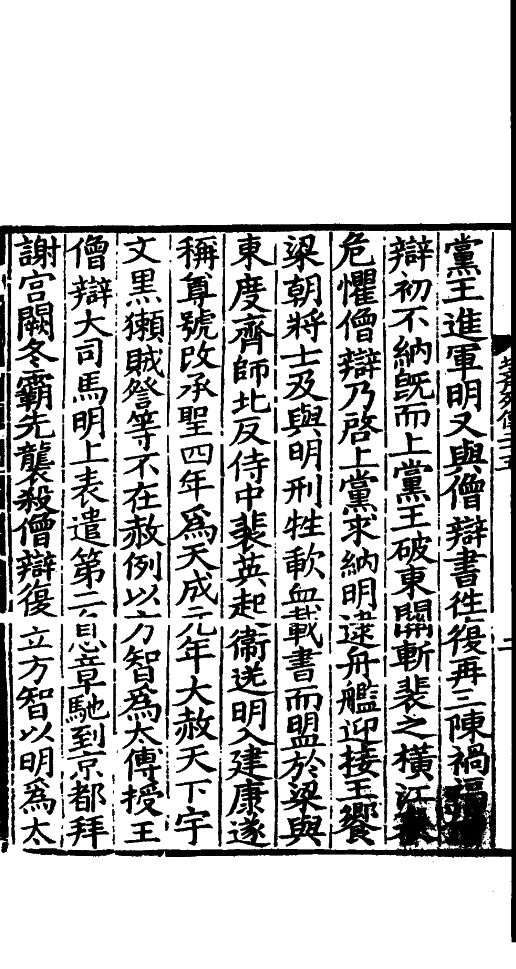 黨王進軍明又與僧辯書徃復再三陳禍福
辯初不納旣而上黨王破東關斬裴之橫江表
危懼僧辯乃啓上黨求納明逮舟艦迎接王饗
梁朝將士及與明刑牲歃血載書而盟於梁與
東度齊師北反侍中裴英起衞送明入建康遂
稱尊號改承聖四年爲天成元年大赦天下宇
文黑獺賊詧等不在赦例以方智爲太傅授王
僧辯大司馬明上表遣第二息章馳到京都拜
謝宫闕冬霸先襲殺僧辯復立方智以明爲太